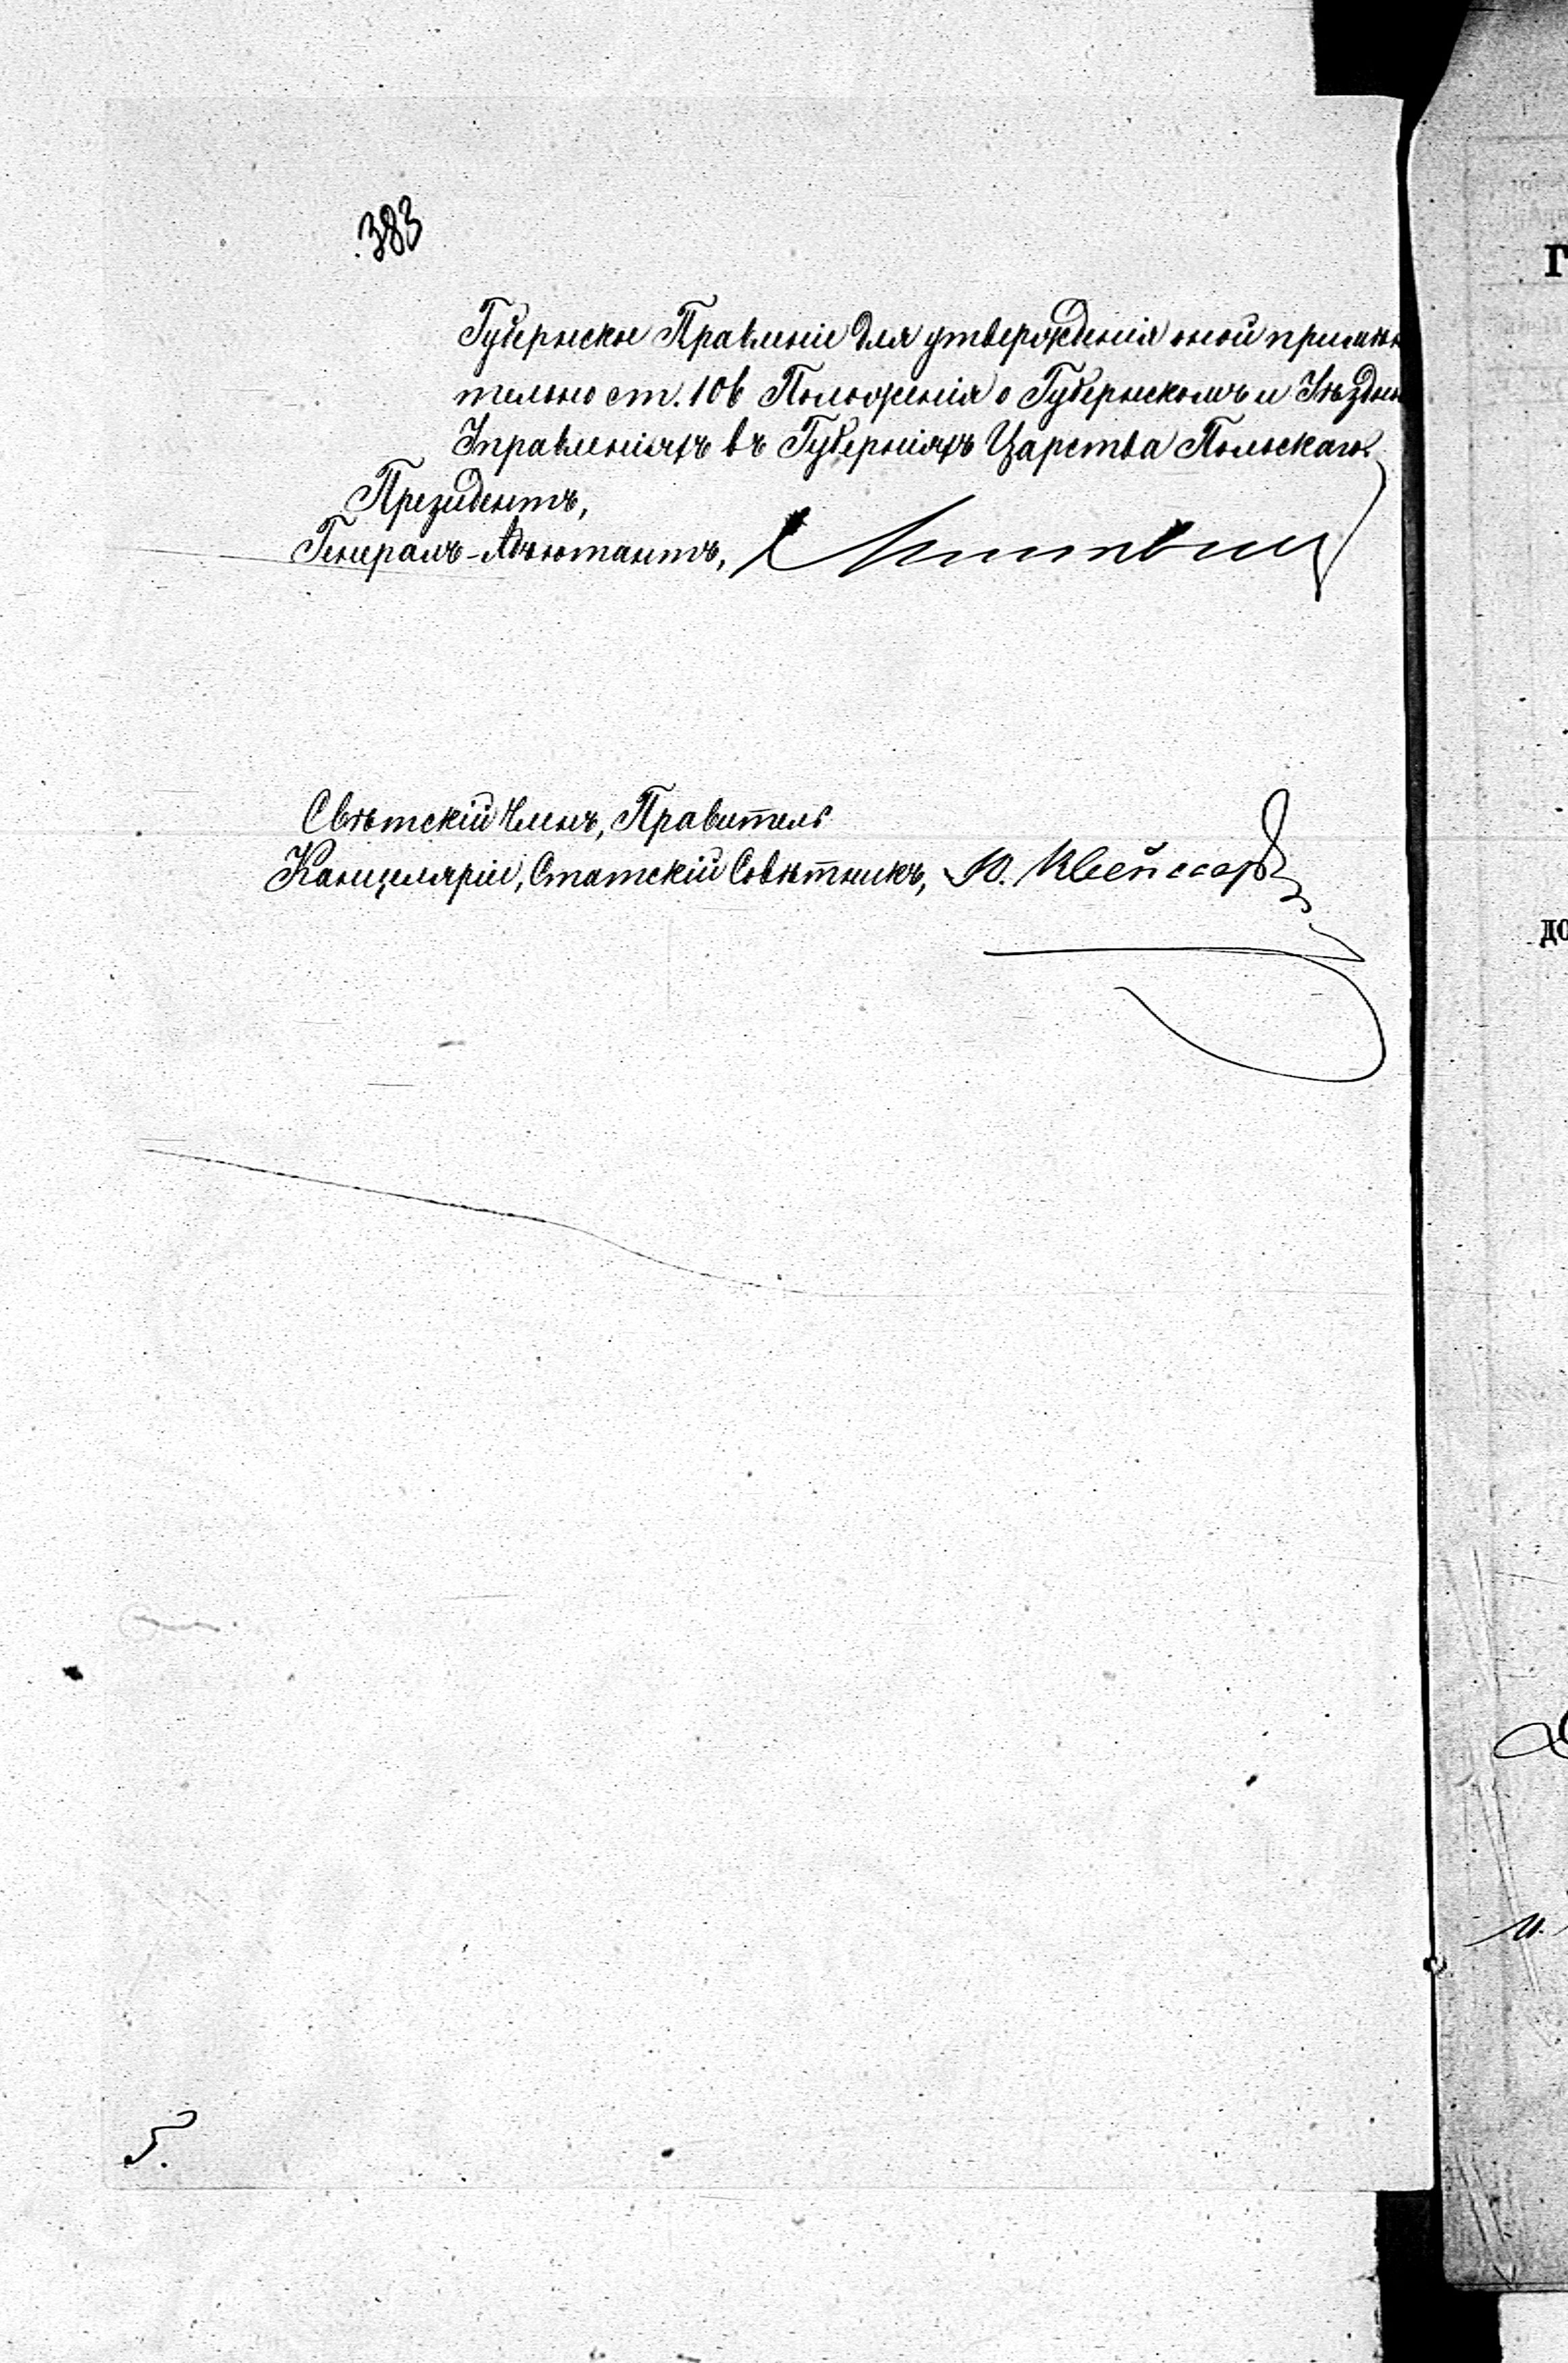 383
Губернское Правленіе для утвержденія оной примѣни
тельно ст. 106 Положенія о Губернскомъ и Уѣздном
Управленіяхъ въ Губерніяхъ Царства Польскаго.
Президентъ,
Генералъ-Адъютантъ,
Свѣтскій Членъ, Правитель
Канцеляріи, Статскій Совѣтникъ, Ю.
5.
Г
до